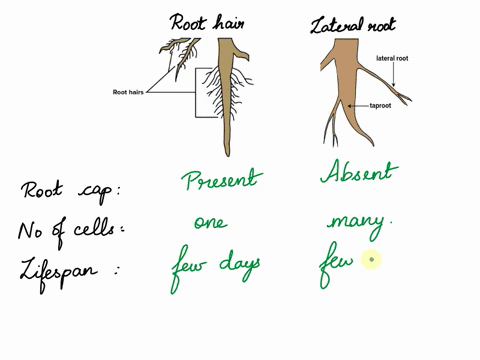 Root hair
Lateral root
Root hairs
lateral root
taproot
Root cap: Present Absent
No of cells: one many.
Lifespan : few days few